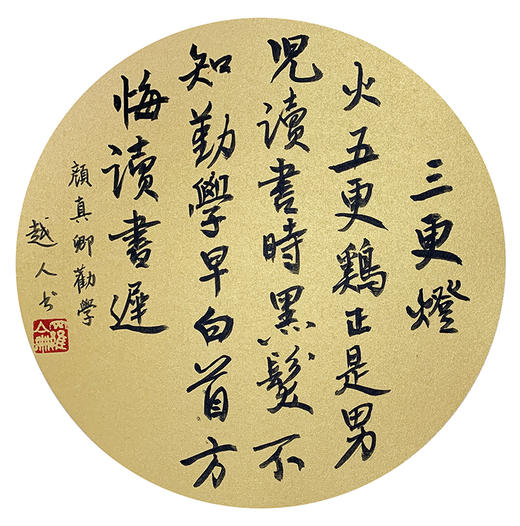 三更燈
火五更鷄正是男
兒讀書時黑髮不
知勤學早白首方
悔讀書遲
顏真卿勸學
越人书